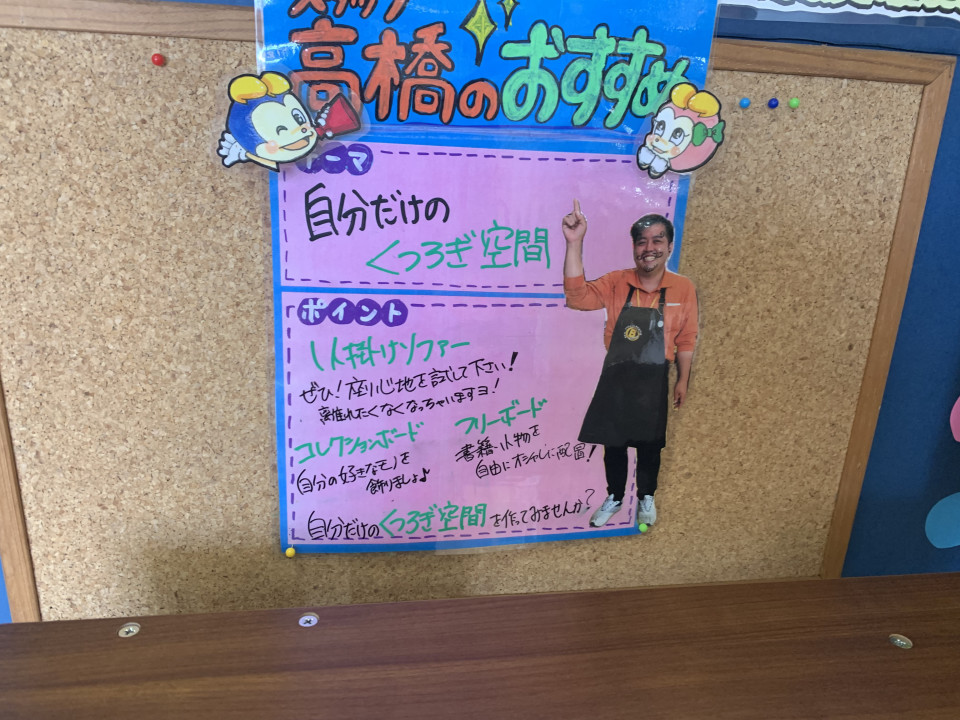 スタッフ
高橋のおすすめ
テーマ
自分だけの
くつろぎ空間
ポイント
1人掛けソファー
ぜひ!座り心地を試して下さい!
離れたくなくなっちゃいますヨ!
コレクションボード
自分の好きなモノを
飾りましょ♪
フリーボード
書籍・小物を
自由にオシャレに配置!
自分だけのくつろぎ空間を作ってみませんか?